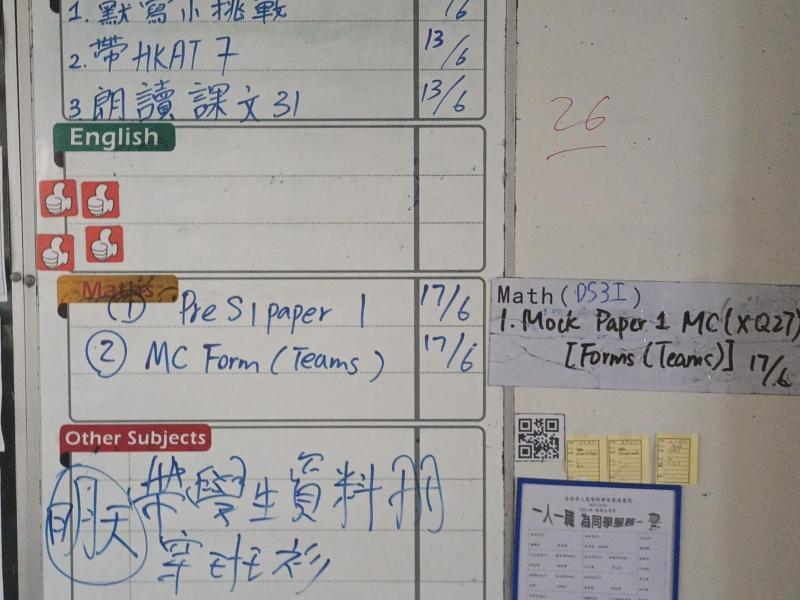 1. 默寫小挑戰 /6
2. 帶HKAT 7 13/6
3 朗讀課文31 13/6
English
26
Maths
① Pre S1 paper 1 17/6
② MC Form (Teams) 17/6
Math(DS3I)
1. Mock Paper 1 MC(XQ27)
[Forms (Teams)] 17/6
Other Subjects
明天 帶學生資料冊
穿社衫
一人一職 為同學服務